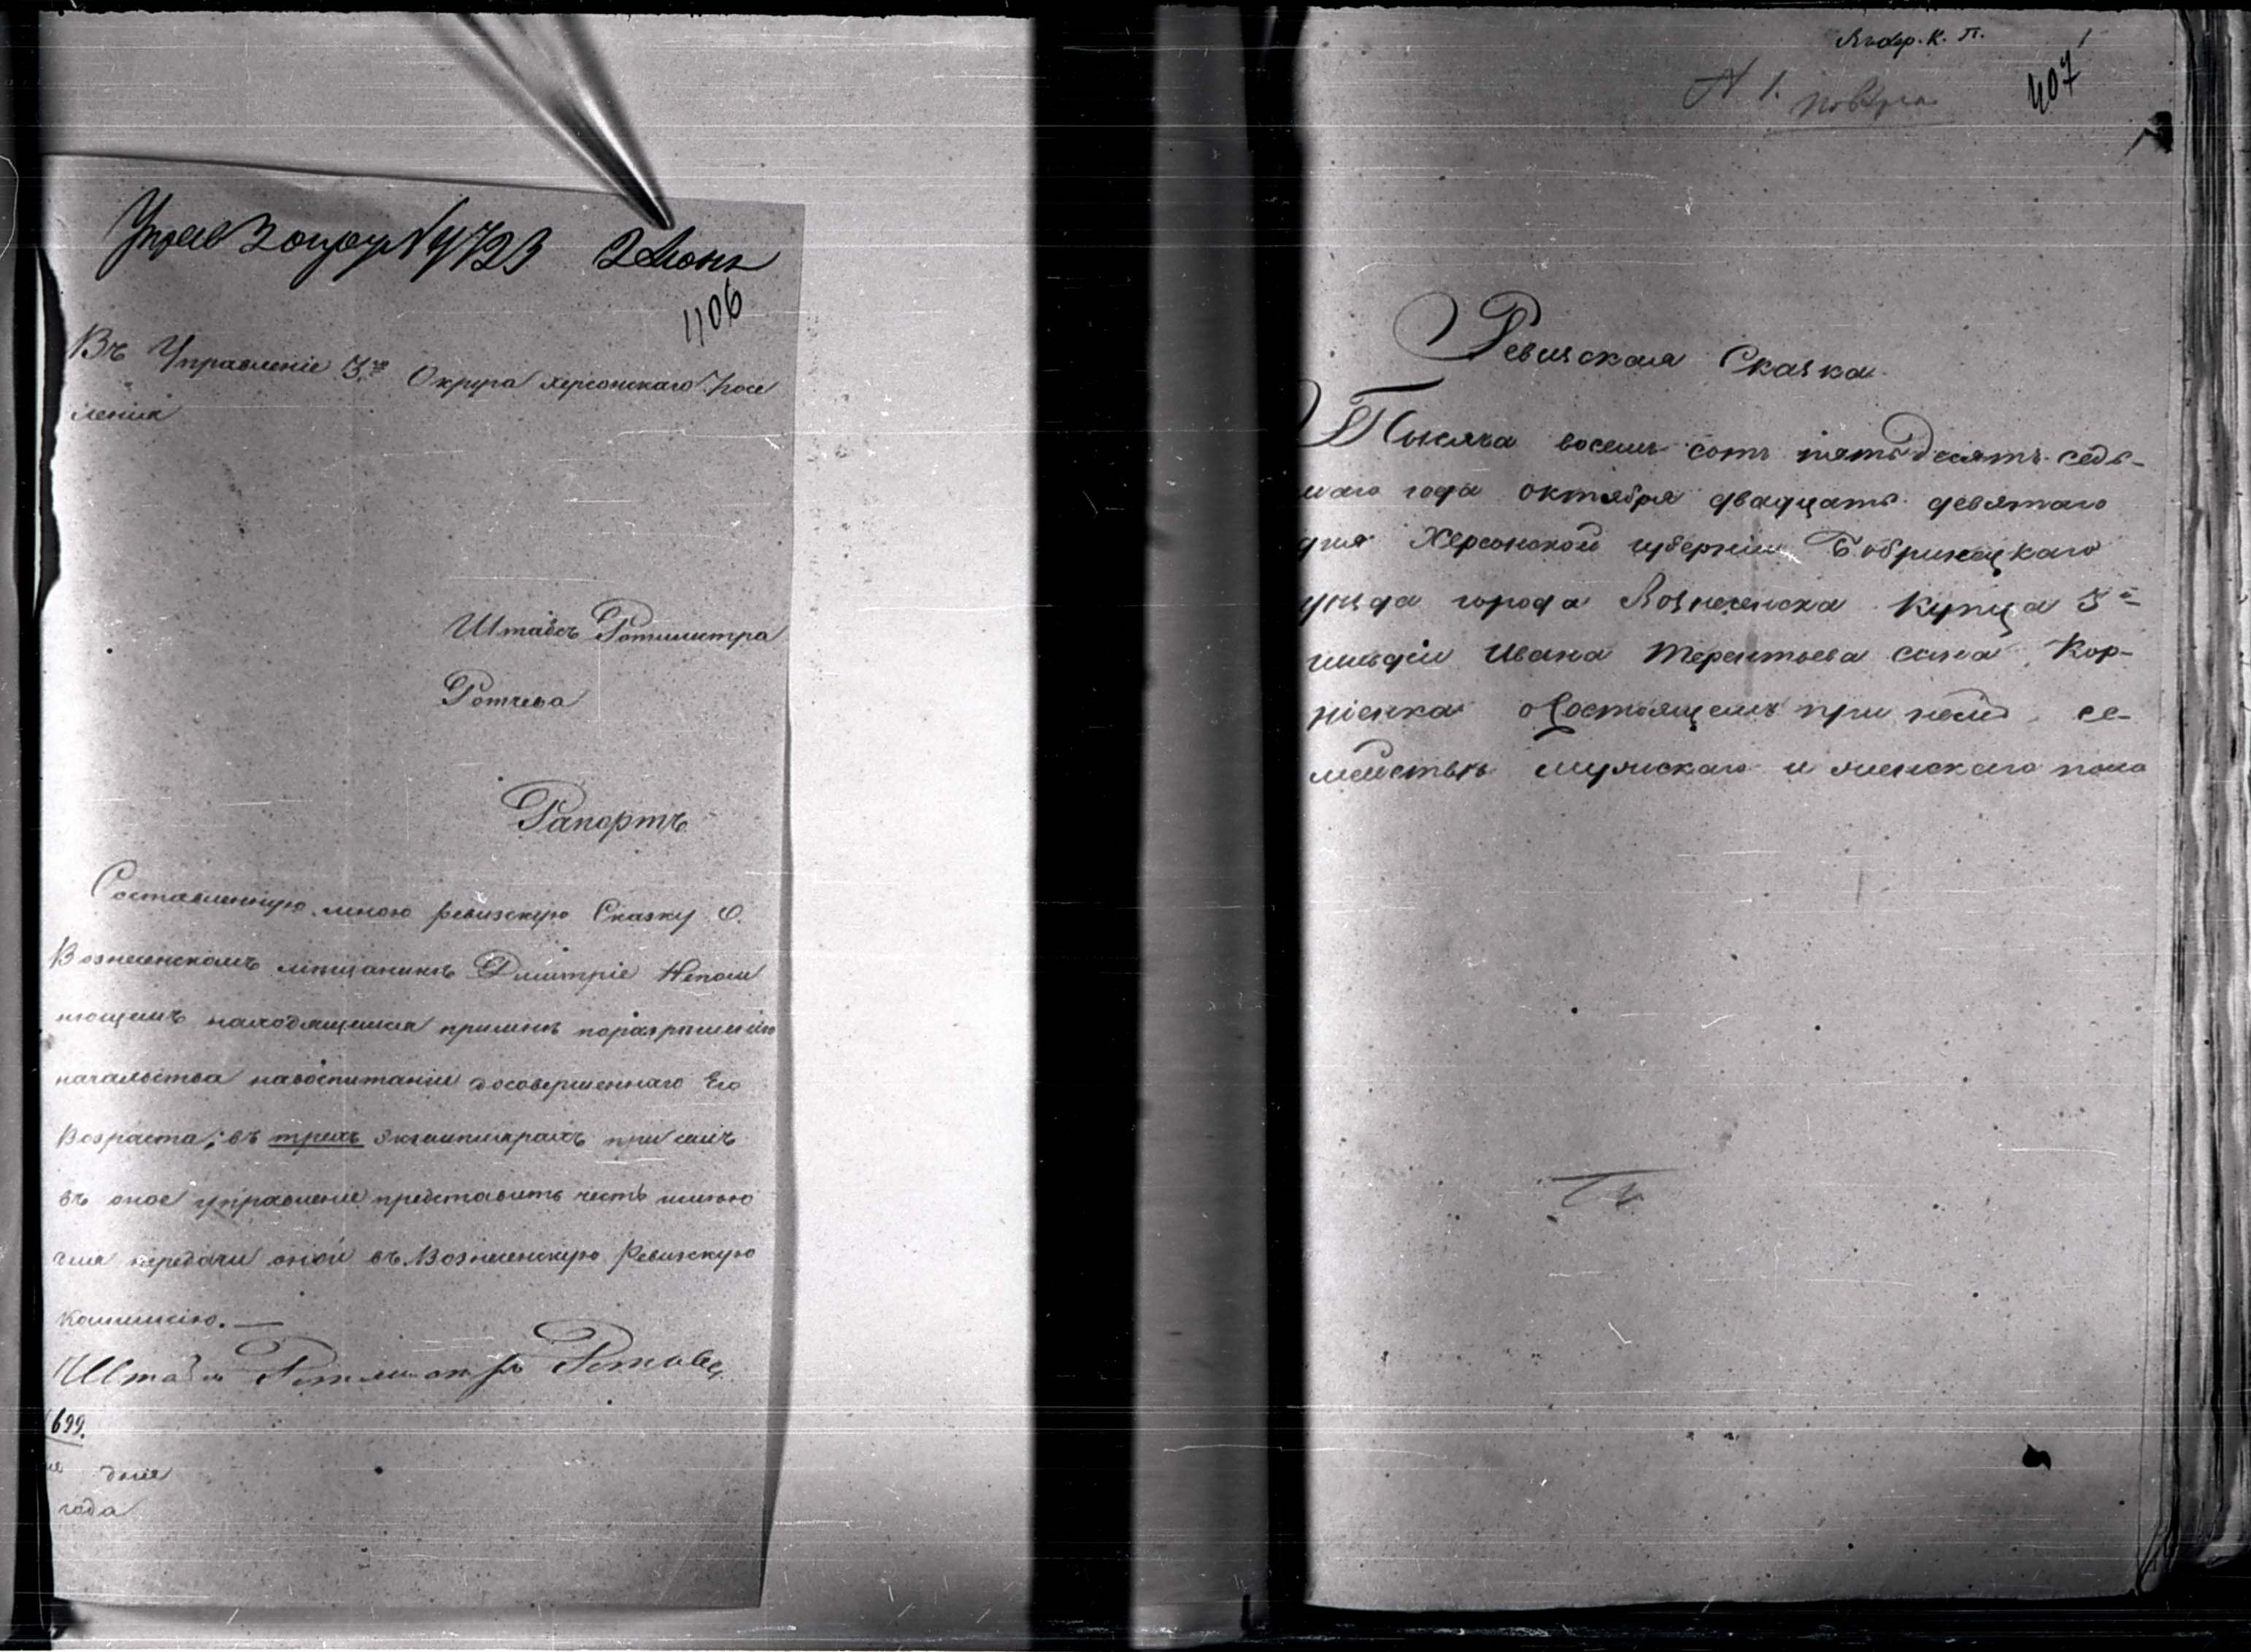 Управ 3 округ № 4723 2 Июня
406
Въ Управленіе 3го Округа Херсонскаго посе
ленія
Штабсъ Ротмистра
Ротчева
Рапортъ
Составленную мною ревизскую Сказку О
Вознесенскомъ мѣщанинѣ Дмитріе Непом
нющемъ находящемся примнѣ поразрѣшенію
начальства навоспитаніи досовершеннаго Его
Возраста; въ трехъ экземплярахъ при семъ
въ оное управленіе представить честь имѣю
для передачи оной въ Вознесенскую Ревизскую
Коммисію. —
Штабсъ Ротмистръ Ротчевъ
699.
дня
года
К. П.
1
№ 1.
407
Ревизская Сказка
Тысяча восемь сотъ пятьдесятъ седь-
маго года октября двадцать девятаго
дня Херсонской губерніи Бобринецкаго
уѣзда города Вознесенска Купца 3й
гильдіи Ивана Терентьева сына Кор-
ніенка о состоящемъ при немъ се-
мействѣ мужскаго и женскаго пола